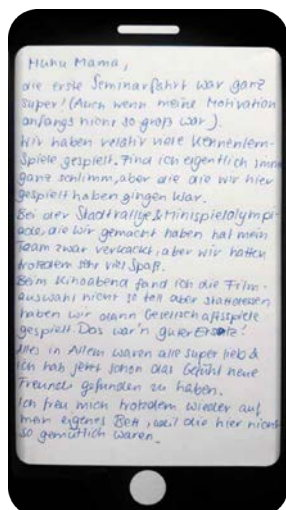 Huhu Mama,
die erste Seminarfahrt war ganz
super! (Auch wenn meine Motivation
anfangs nicht so groß war).
Wir haben relativ viele Kennenlern-
Spiele gespielt. Find ich eigentlich immer
ganz schlimm, aber die die wir hier
gespielt haben gingen klar.
Bei der Stadtrallye & Minispielolympi-
ade, die wir gemacht haben hat mein
Team zwar verkackt, aber wir hatten
trotzdem sehr viel Spaß.
Beim Kinoabend fand ich die Film-
auswahl nicht so toll aber stattdessen
haben wir dann Gesellschaftsspiele
gespielt. Das war'n guter Ersatz!
Alles in Allem waren alle super lieb &
ich hab jetzt schon das Gefühl neue
Freunde gefunden zu haben.
Ich freu mich trotzdem wieder auf
mein eigenes Bett, weil die hier nicht
so gemütlich waren.